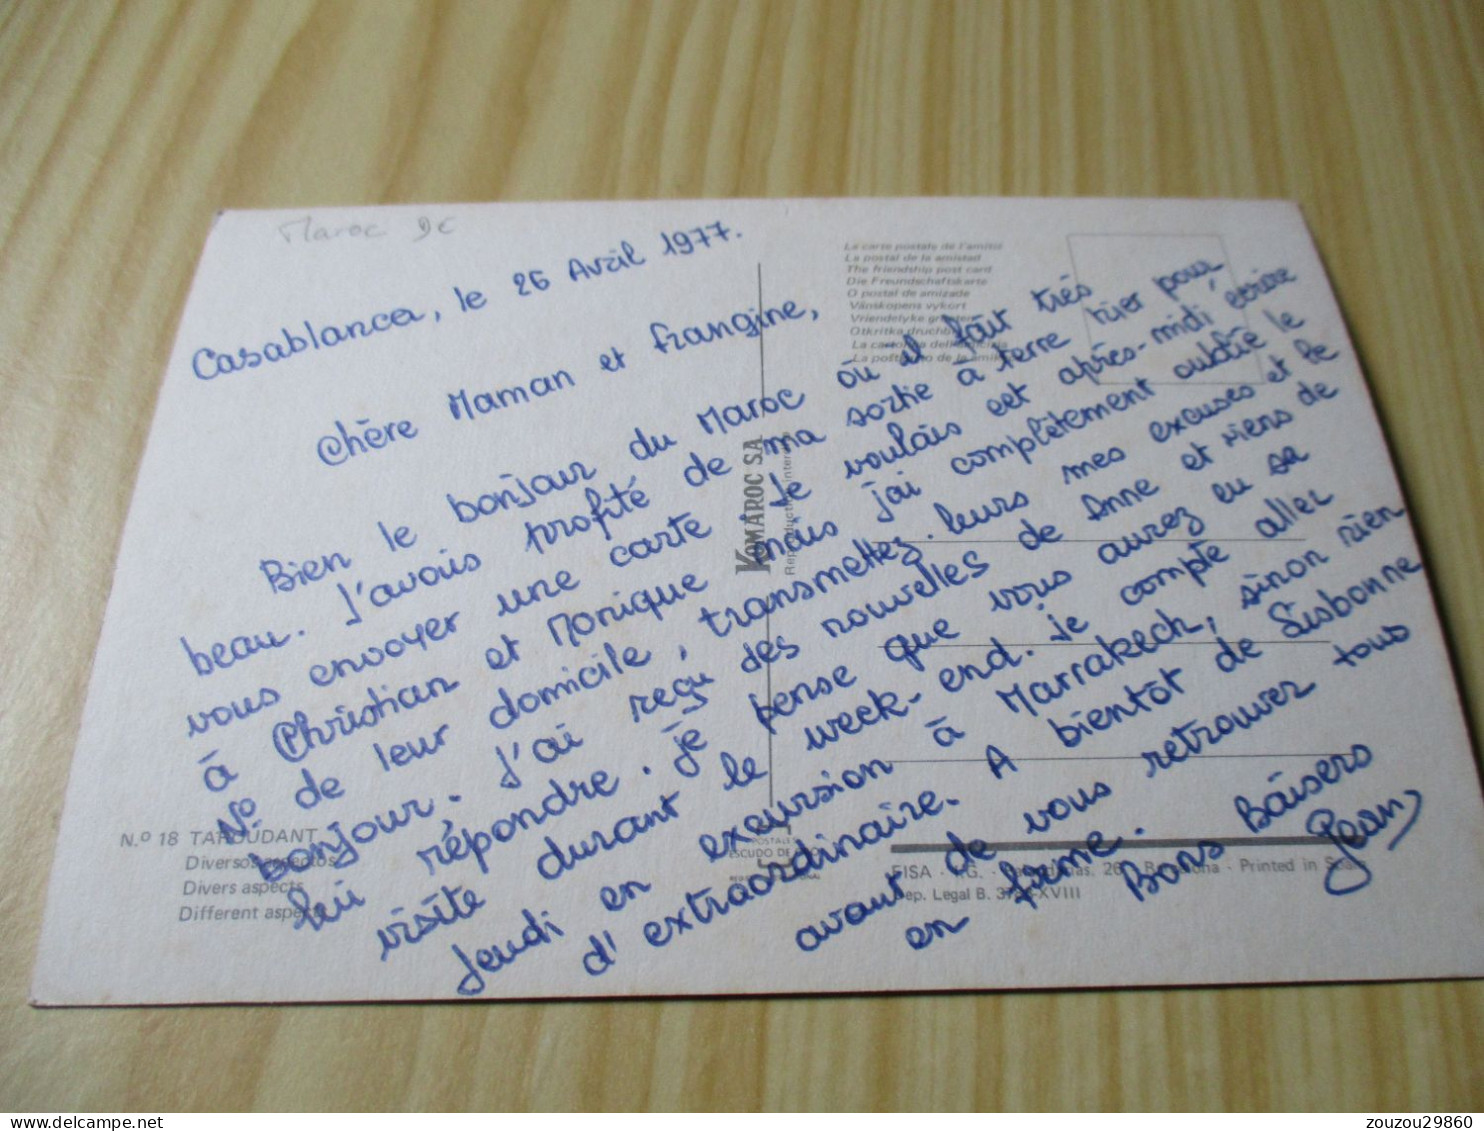 Maroc 9€
Casablanca, le 26 Avril 1977.
Chère Maman et frangine,
Bien le bonjour du Maroc où il fait très
beau. J'avais profité de ma sortie à terre hier pour
vous envoyer une carte. Je voulais cet après-midi écrire
à Christian et Monique mais j'ai complètement oublié le
N° de leur domicile, transmettez-leurs mes excuses et le
bonjour. J'ai reçu des nouvelles de Anne et viens de
lui répondre. Je pense que vous aurez eu sa
visite durant le week-end. Je compte aller
Jeudi en excursion à Marrakech, sinon rien
d'extraordinaire. A bientôt de Lisbonne
avant de vous retrouver tous
en forme. Bons Baisers
Jean
La carte postale de l'amitié
La postal de la amistad
The friendship post card
Die Freundschaftskarte
O postal de amizade
Vänskapens vykort
Vriendelyke
Otkritka
La
La
KOMAROC S.A.
N.º 18 TAROUDANT
Diversos aspectos
Divers aspects
Different aspects
POSTALES
ESCUDO DE ORO
FISA - I.G. - 26 - Barcelona - Printed in Spain
Dep. Legal B. XVIII
zouzou29860